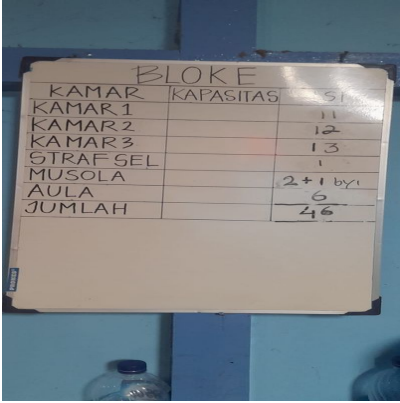 BLOKE
KAMAR KAPASITAS ISI
KAMAR 1 11
KAMAR 2 12
KAMAR 3 13
STRAFSEL 1
MUSOLA 2 + 1 byi
AULA 6
JUMLAH 46